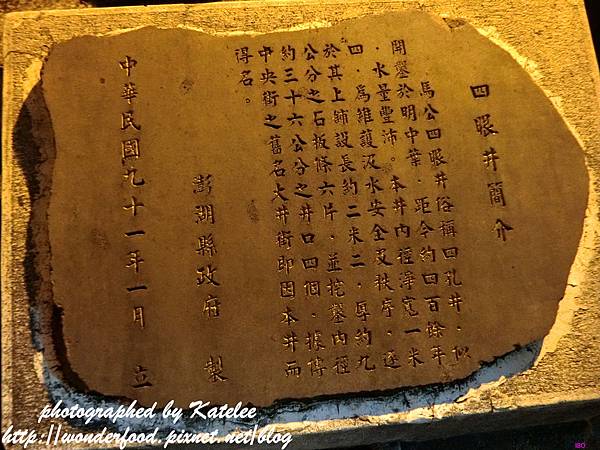 四眼井簡介
馬公四眼井俗稱四孔井，似
開鑿於明中葉，距今約四百餘年
，水量豐沛。本井內徑淨寬一米
四，為維護汲水安全及秩序，遂
於其上鋪設長約二米二，厚約九
公分之石板條六片，並挖鑿內徑
約三十六公分之井口四個，據傳
中央街之舊名大井街即因本井而
得名。
澎湖縣政府 製
中華民國九十一年一月 立
photographed by Katelee
http://wonderfood.pixnet.net/blog
IBO